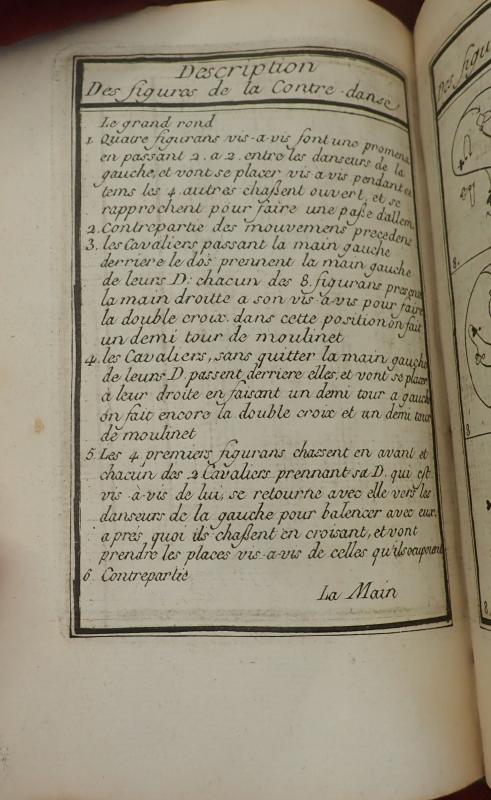 Description
Des figures de la Contre-danse
Le grand rond
1. Quatre figurans vis-a-vis font une promena
en passant 2. a 2. entre les danseurs de la
gauche, et vont se placer vis a vis pendant ce
tems les 4. autres chaßent ouvert, et se
rapprochent pour faire une paße d'allem
2. Contrepartie des mouvemens precedens
3. les Cavaliers passant la main gauche
derriere le dos prennent la main gauche
de leurs D: chacun des 8. figurans presente
la main droitte a son vis-a-vis pour faire
la double croix. dans cette position on fait
un demi tour de moulinet
4. les Cavaliers, sans quitter la main gauche
de leurs D. passent derriere elles, et vont se placer
à leur droite en faisant un demi tour a gauche
on fait encore la double croix et un demi tour
de moulinet
5. Les 4. premiers figurans chassent en avant et
chacun des 2 Cavaliers prennant sa D. qui est
vis-à-vis de lui, se retourne avec elle vers les
danseurs de la gauche pour balencer avec eux,
apres quoi ils chaßent en croisant, et vont
prendre les places vis-a-vis de celles qu'ils ocupoient
6 Contrepartie
La Main
Des figu
8.
8
8.